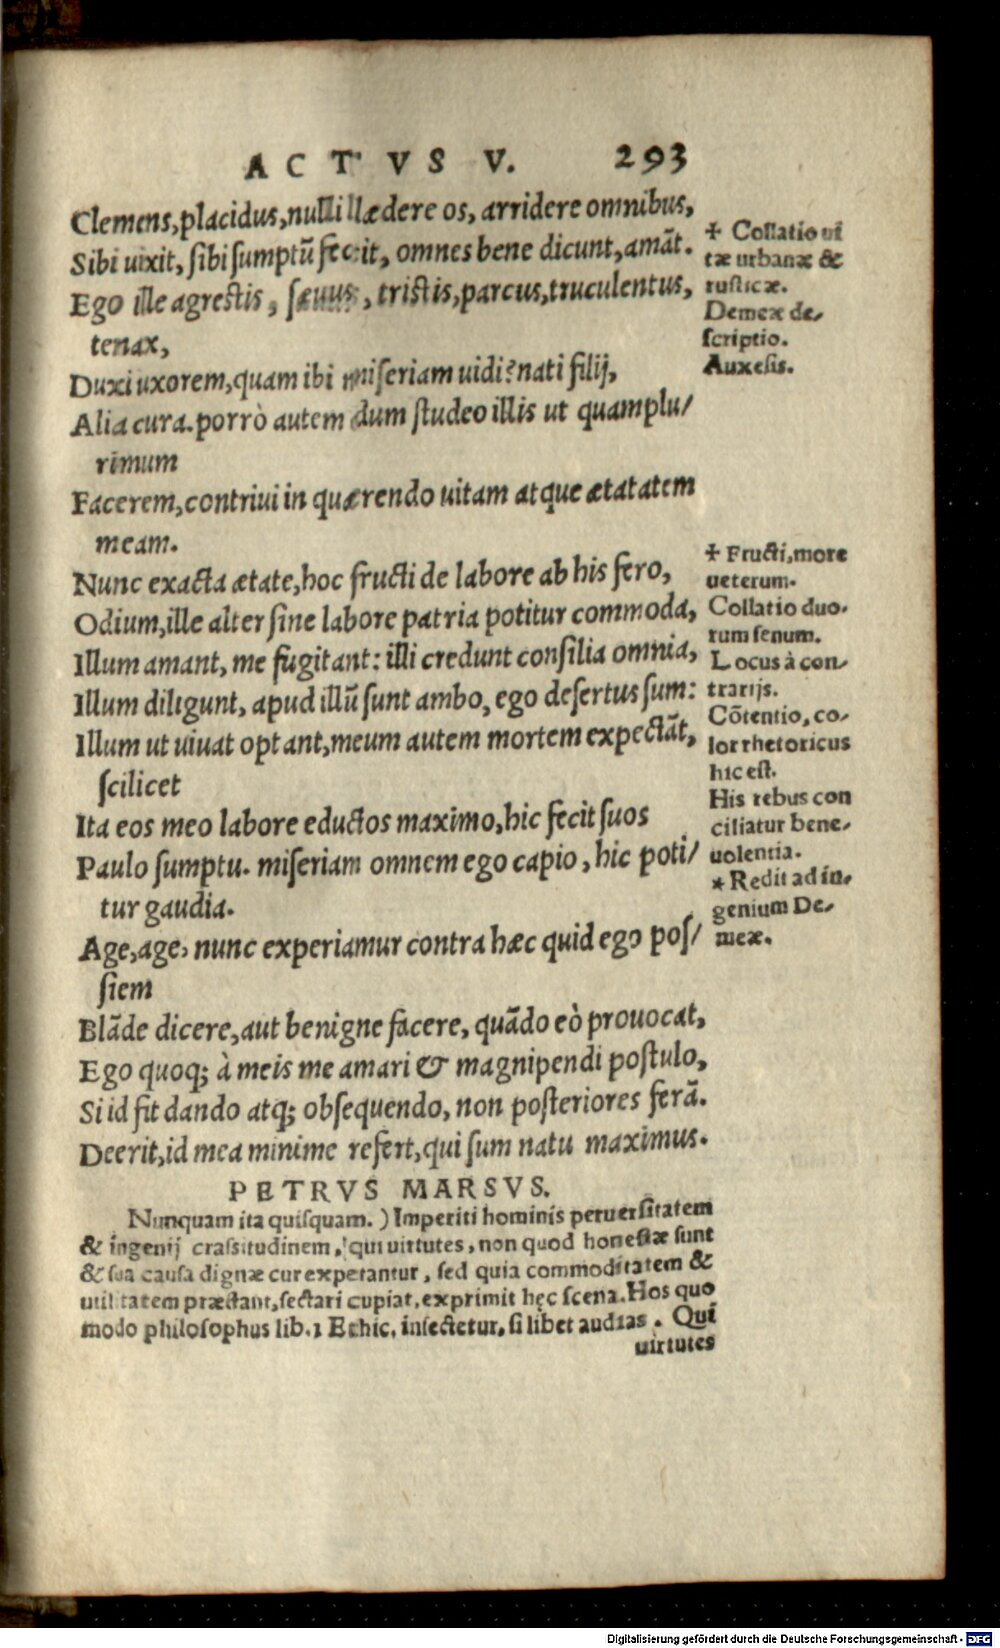 ACTVS V. 293
Clemens,placidus,nulli lædere os, arridere omnibus,
Sibi uixit, sibi sumptũ fecit, omnes bene dicunt,amãt.
Ego ille agrestis, sæuus, tristis,parcus,truculentus,
tenax,
Duxi uxorem,quam ibi miseriam uidi? nati filij,
Alia cura. porrò autem dum studeo illis ut quamplu/
rimum
Facerem,contriui in quærendo uitam atque ætatatem
meam.
Nunc exacta ætate,hoc fructi de labore ab his fero,
Odium,ille alter sine labore patria potitur commoda,
Illum amant, me fugitant: illi credunt consilia omnia,
Illum diligunt, apud illũ sunt ambo, ego desertus sum:
Illum ut uiuat optant,meum autem mortem expectãt,
scilicet
Ita eos meo labore eductos maximo,hic fecit suos
Paulo sumptu. miseriam omnem ego capio, hic poti/
tur gaudia.
Age,age, nunc experiamur contra hæc quid ego pos/
siem
Blãde dicere,aut benigne facere, quãdo eò prouocat,
Ego quoq; à meis me amari & magnipendi postulo,
Si id fit dando atq; obsequendo, non posteriores ferã.
Deerit,id mea minime refert,qui sum natu maximus.
+ Collatio ui
tæ urbanæ &
rusticæ.
Demeæ de-
scriptio.
Auxesis.
+ Fructi,more
ueterum.
Collatio duo.
rum senum.
Locus à con-
trarijs.
Cõtentio, co-
lor rhetoricus
hic est.
His rebus con
ciliatur bene-
uolentia.
* Redit ad in-
genium De-
meæ.
PETRVS MARSVS.
Nunquam ita quisquam. ) Imperiti hominis peruersitatem
& ingenij crassitudinem, qui uirtutes, non quod honestæ sunt
& sua causa dignæ cur expetantur, sed quia commoditatem &
utilitatem præstant,sectari cupiat,exprimit hęc scena.Hos quo
modo philosophus lib.1 Ethic. insectetur, si libet audias. Qui
uirtutes
Digitalisierung gefördert durch die Deutsche Forschungsgemeinschaft - DFG